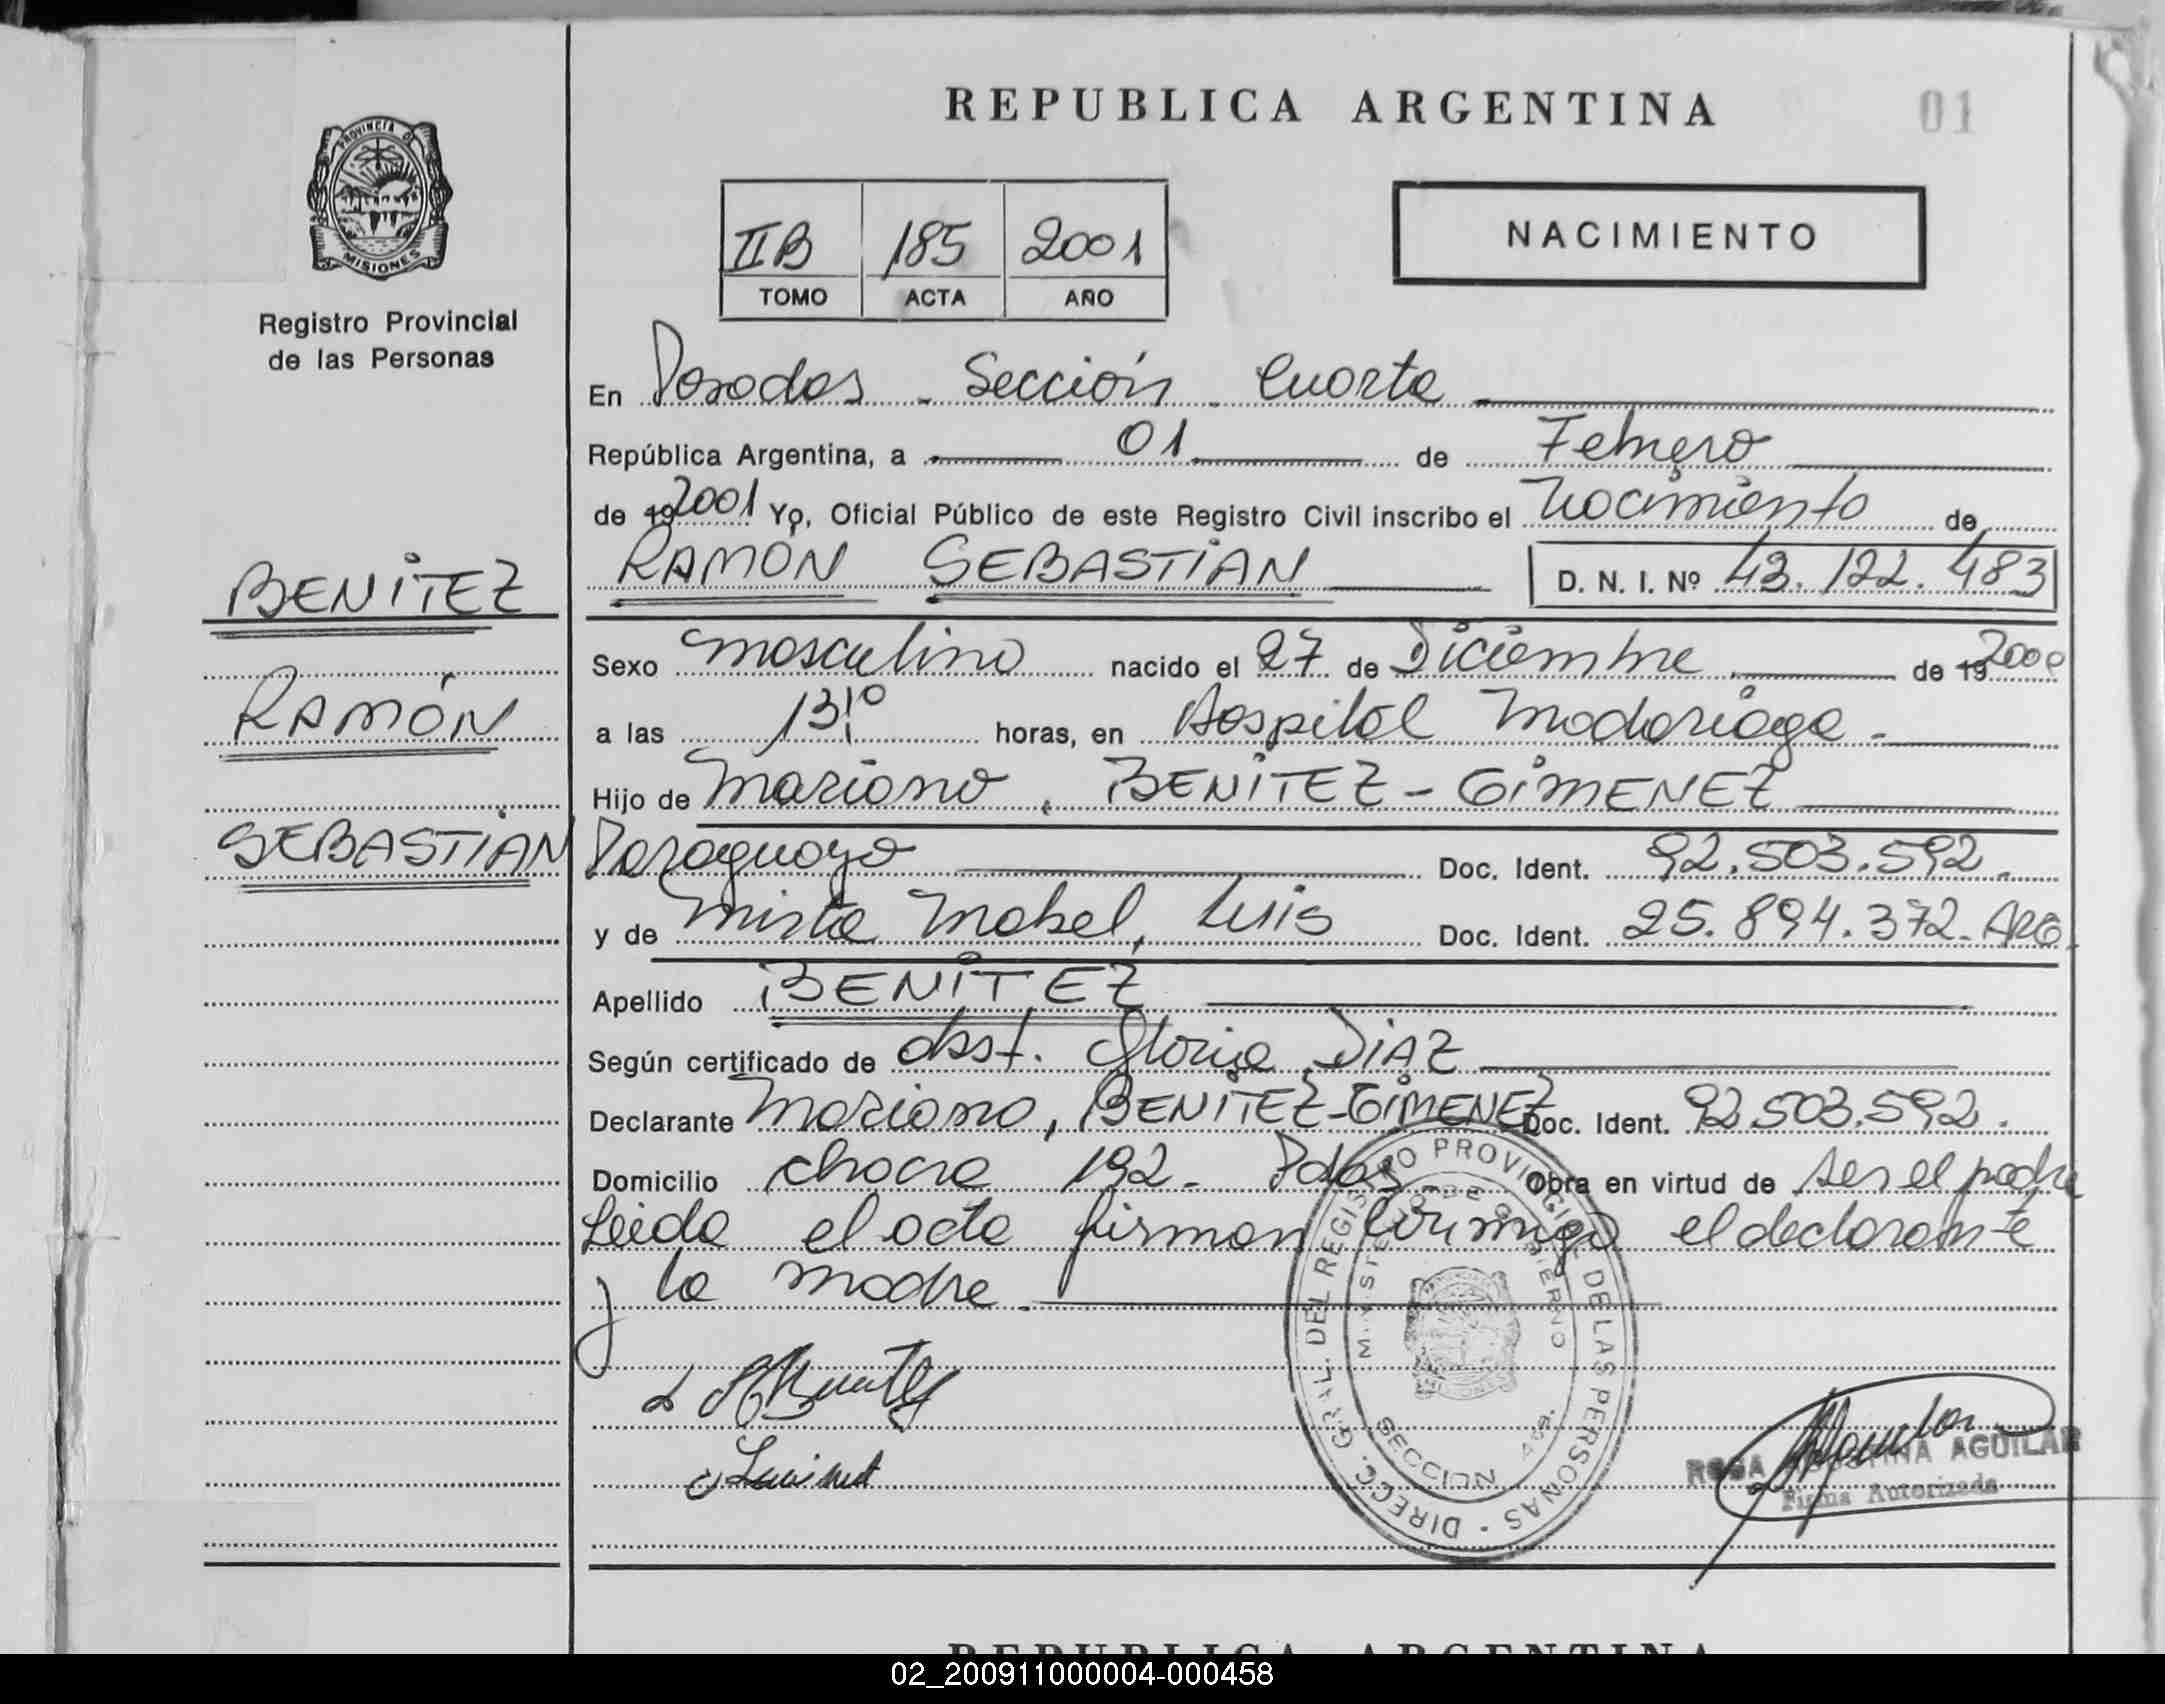 REPUBLICA ARGENTINA
01
PROVINCIA DE
MISIONES
Registro Provincial
de las Personas
IIB 185 2001
TOMO ACTA AÑO
NACIMIENTO
En Posadas - Sección - Cuarta
República Argentina, a 01 de Febrero
de 19 2001 Yo, Oficial Público de este Registro Civil inscribo el Nacimiento de
RAMÓN SEBASTIAN D. N. I. Nº 43.122.483
BENITEZ
RAMÓN
SEBASTIAN
Sexo masculino nacido el 27 de Diciembre de 19 2000
a las 13:10 horas, en Hospital Madariaga -
Hijo de Mariano, BENITEZ - GIMENEZ
Paraguayo Doc. Ident. 92.503.592.
y de Mirta Mabel, Luis Doc. Ident. 25.894.372. ARG.
Apellido BENITEZ
Según certificado de obst. Gloria DIAZ
Declarante Mariano, BENITEZ-GIMENEZ Doc. Ident. 92.503.592.
Domicilio chacra 192 - Pdas - Obra en virtud de ser el padre
Leida el acta firman conmigo el declarante
y la madre.
DIRECC. GRAL. DEL REGISTRO PROVINCIAL DE LAS PERSONAS
MINISTERIO DE GOBIERNO
SECCION 4ta.
ROSA AGUSTINA AGUILAR
Firma Autorizada
REPUBLICA ARGENTINA
02_200911000004-000458